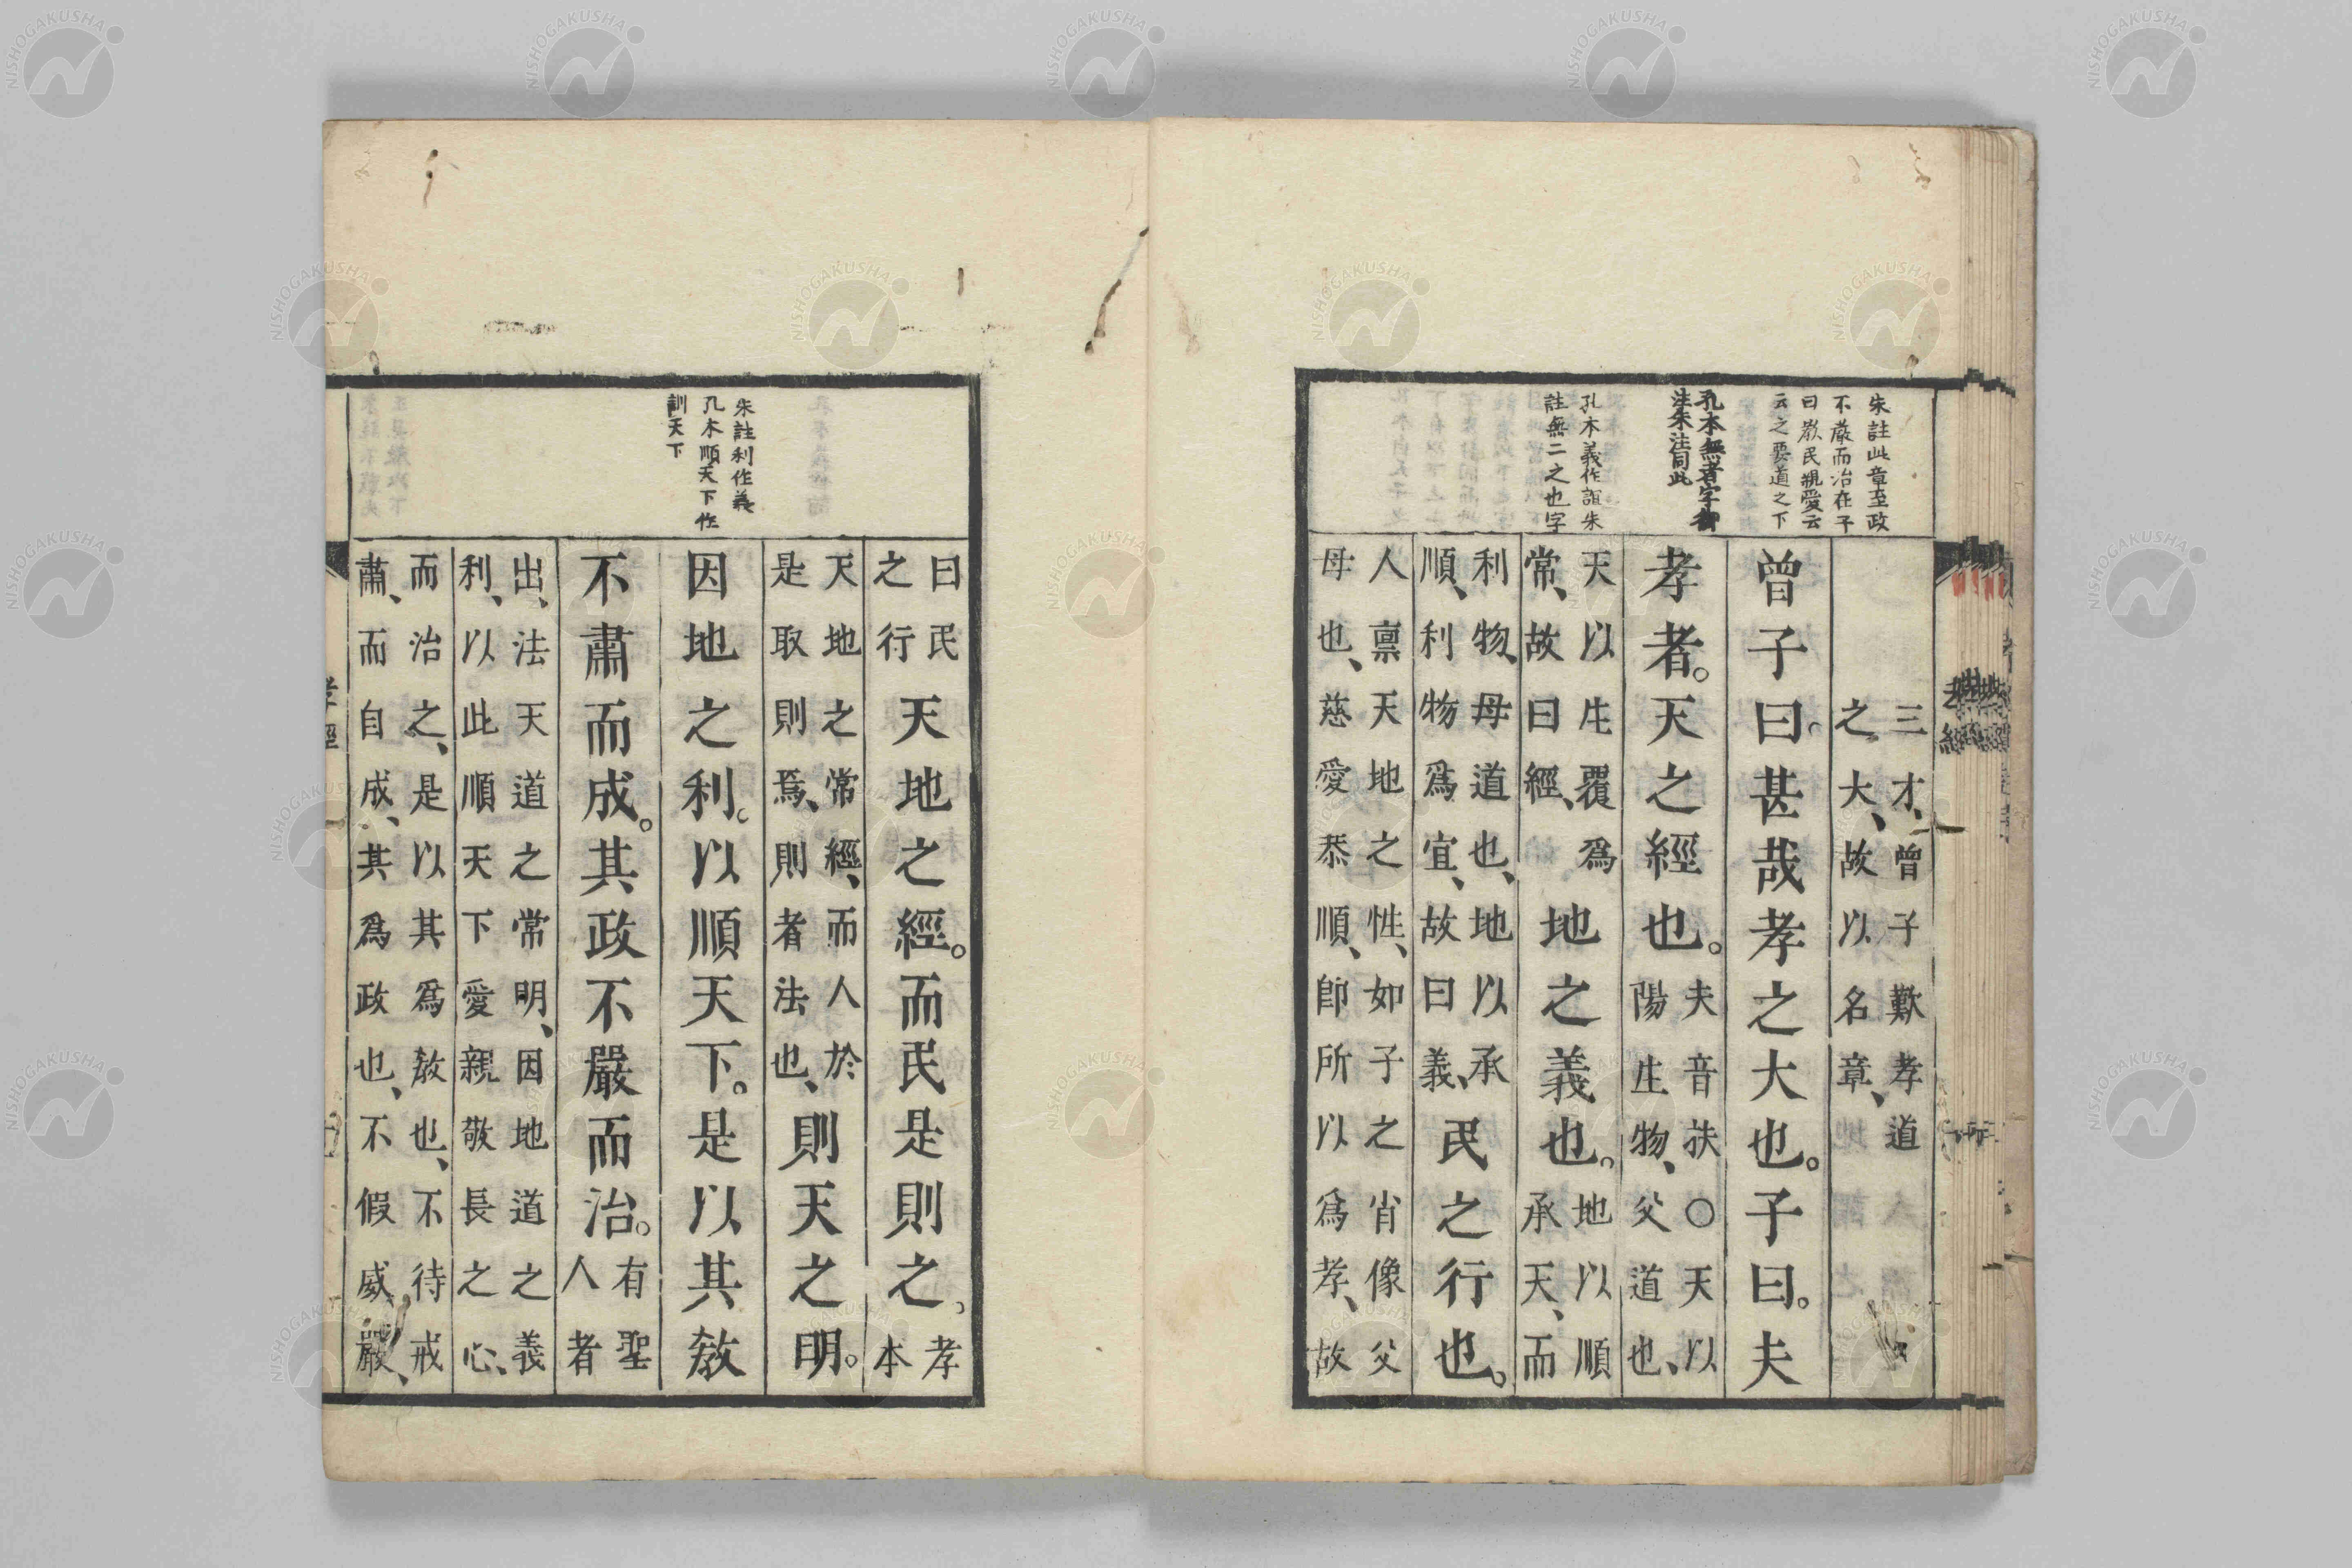 朱註此章至政
不嚴而治在子
曰教民親愛云
云之要道之下
孔本無者字御
注朱注同此
孔本義作誼朱
註無二之也字
三才、曾子歎孝道
之大、故以名章、
曾子曰。甚哉孝之大也。子曰。夫
孝者。天之經也。夫音扶○天以
陽生物、父道也、
天以生覆爲
常、故曰經、
地之義也。地以順
承天、而
利物、母道也、地以承
順、利物爲宜、故曰義、
民之行也。
人稟天地之性、如子之肖像父
母也、慈愛恭順、卽所以爲孝、故
朱註利作義
孔本順天下作
訓天下
曰民
之行
天地之經。而民是則之。孝
本
天地之常經、而人於
是取則焉、則者法也、
則天之明。
因地之利。以順天下。是以其敎
不肅而成。其政不嚴而治。有聖
人者
出、法天道之常明、因地道之義
利、以此順天下愛親敬長之心、
而治之、是以其爲敎也、不待戒
肅、而自成、其爲政也、不假威嚴、
孝經
NISHOGAKUSHA